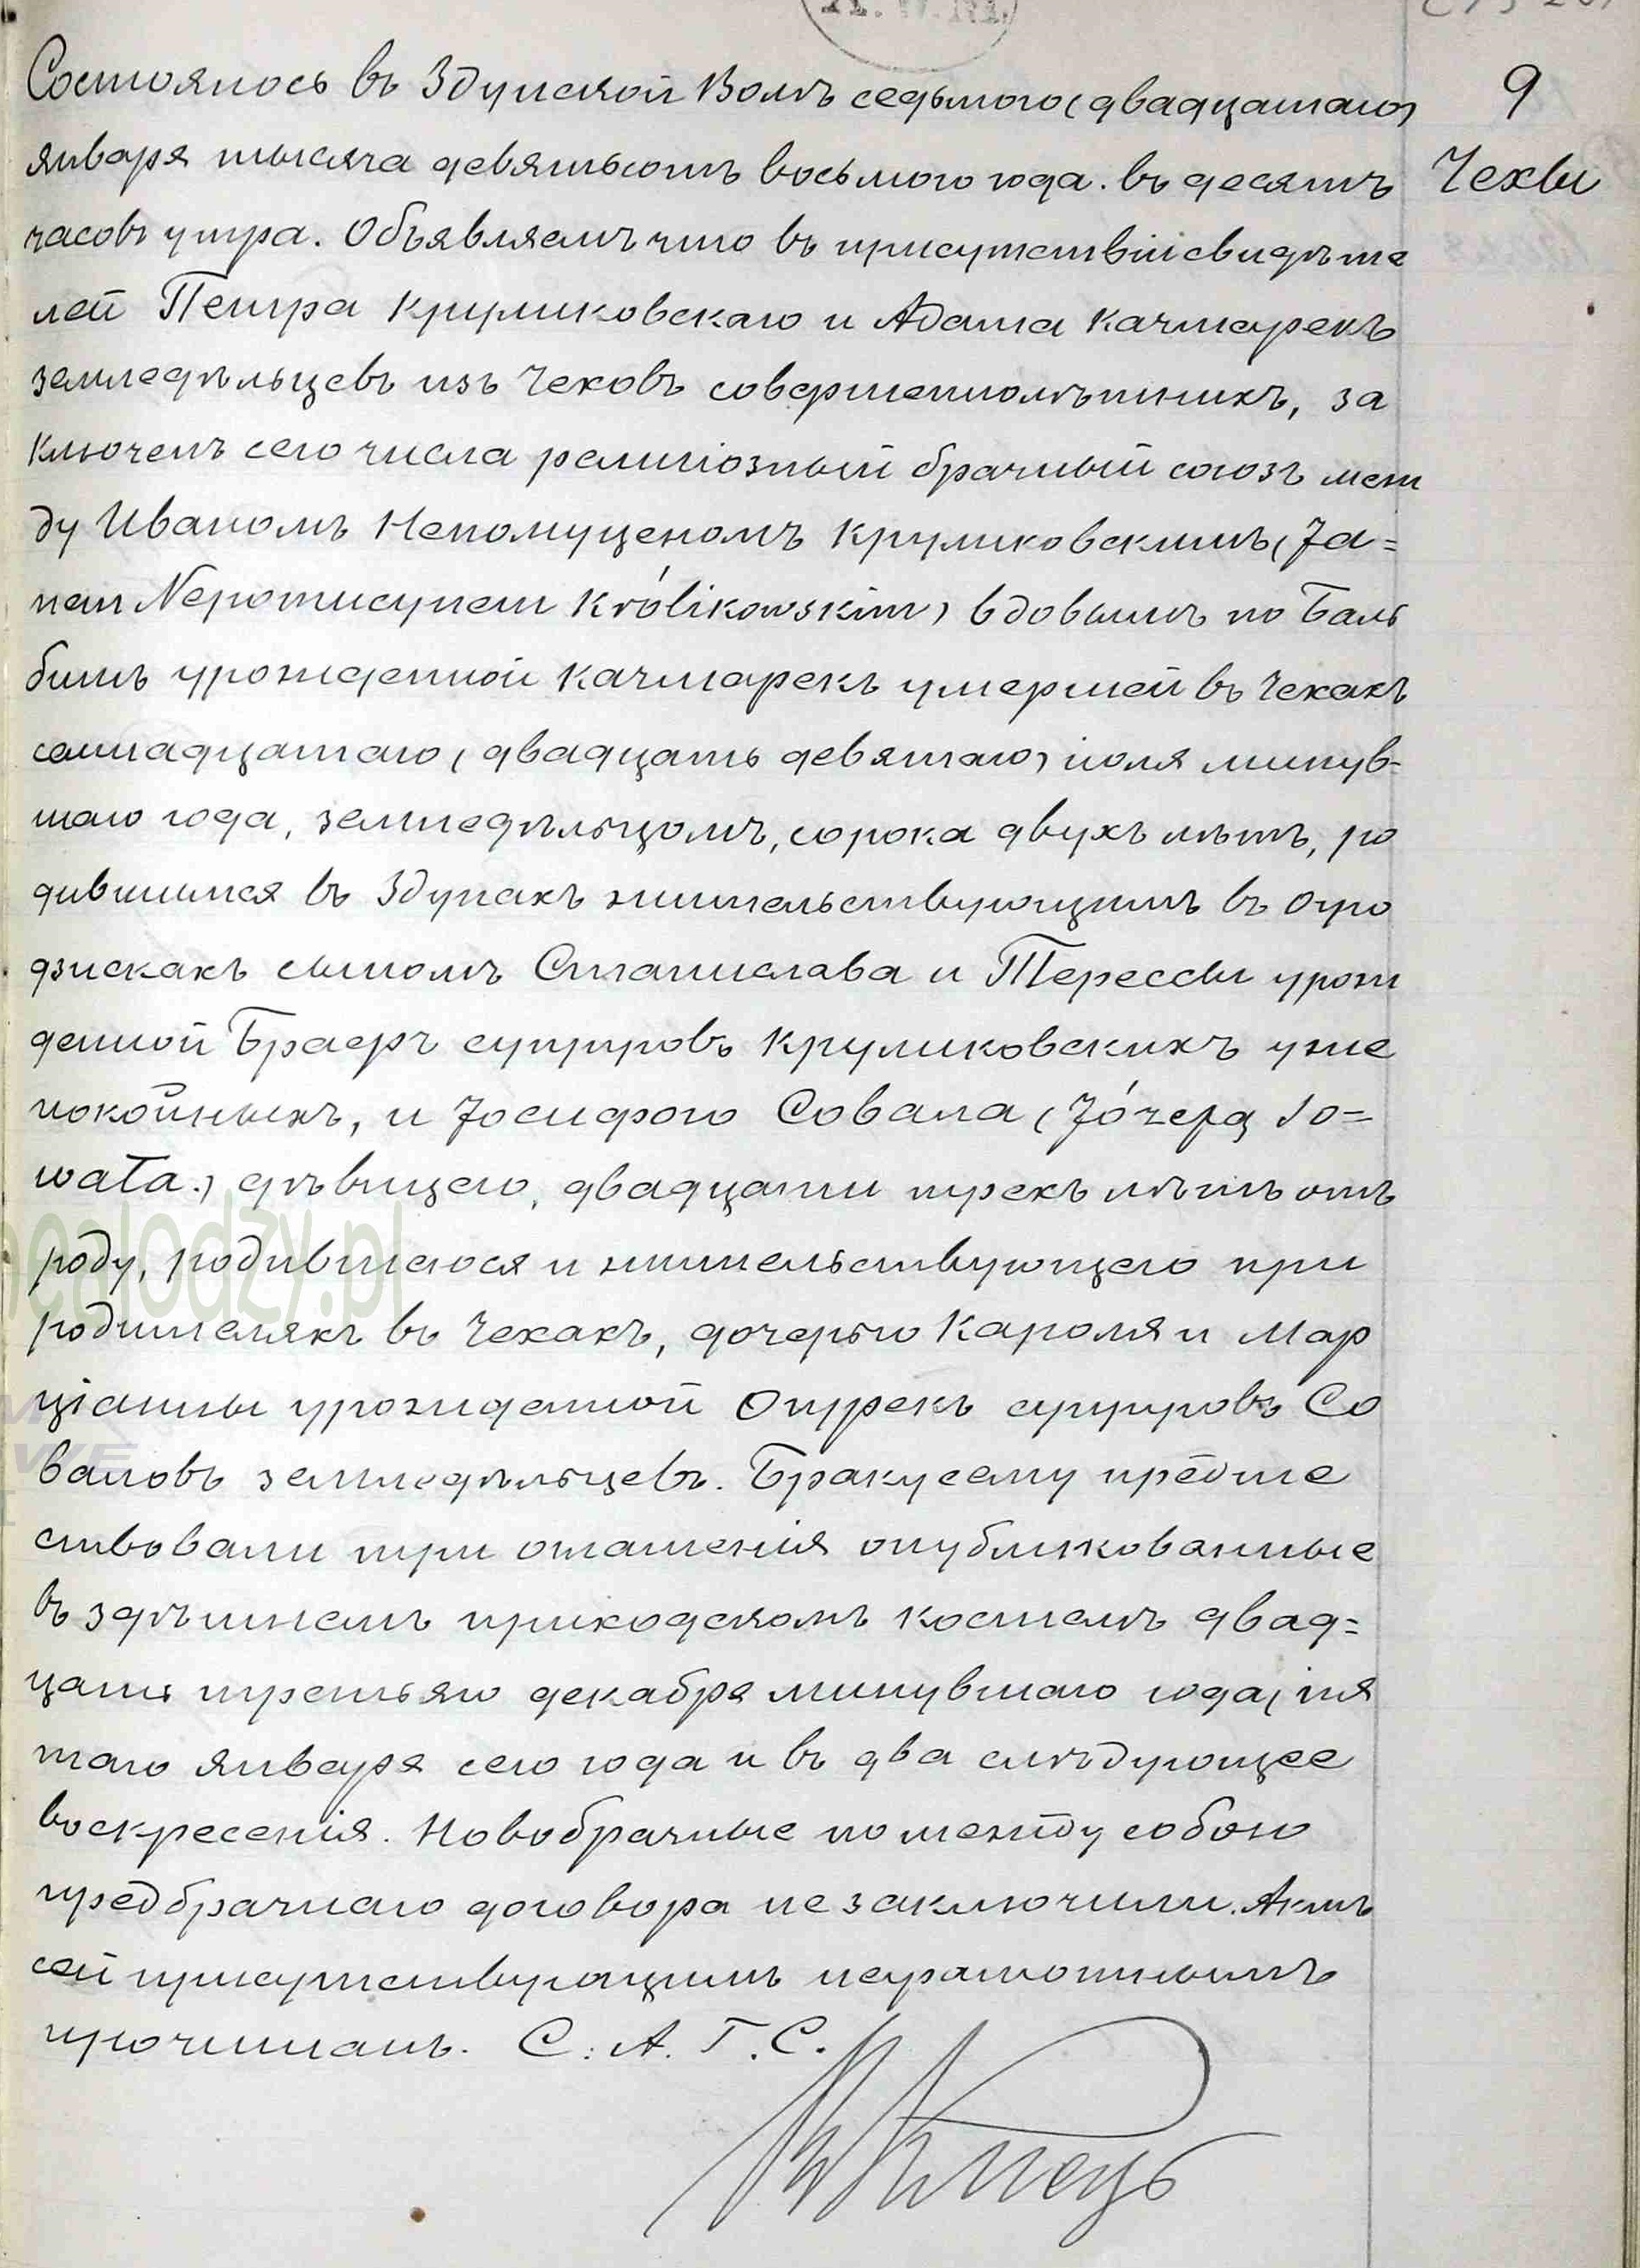 9
Чехы
Состоялось въ Здунской Волѣ седьмого (двадцатаго)
января тысяча девятьсотъ восьмого года. въ десять
часовъ утра. Объявляемъ что въ присутствіи свидѣте
лей Петра Круликовскаго и Адама Качмарекъ
земледѣльцевъ изъ Чеховъ совершеннолѣтнихъ, за
ключенъ сего числа религіозный брачный союзъ меж
ду Иваномъ Непомуценомъ Круликовскимъ (Ja=
nem Nepomucynem Królikowskim) вдовымъ по Баль
бинѣ урожденной Качмарекъ умершей въ Чехахъ
семнадцатаго (двадцать девятаго) іюля минув-
шаго года, земледѣльцомъ, сорока двухъ лѣтъ, ро
дившимся въ Здунахъ жительствующимъ въ Огро
дзискахъ сыномъ Станислава и Терессы урож
денной Браеръ супруговъ Круликовскихъ уже
покойныхъ, и Іосифою Совала (Józefą So=
wała.) дѣвицею, двадцати трехъ лѣтъ отъ
роду, родившаюся и жительствующею при
родителяхъ въ Чехахъ, дочерью Кароля и Мар
ціанны урожденной Опурекъ супруговъ Со
валовъ земледѣльцевъ. Браку сему предше
ствовали три оглашенія опубликованные
въ здѣшнемъ приходскомъ костелѣ двад=
цать третьяго декабря минувшаго года, пя
таго января сего года и въ два слѣдующее
воскресенія. Новобрачные по между собою
предбрачнаго договора не заключили. Актъ
сей присутствующимъ неграмотнымъ
прочитанъ. С. А. Г. С.